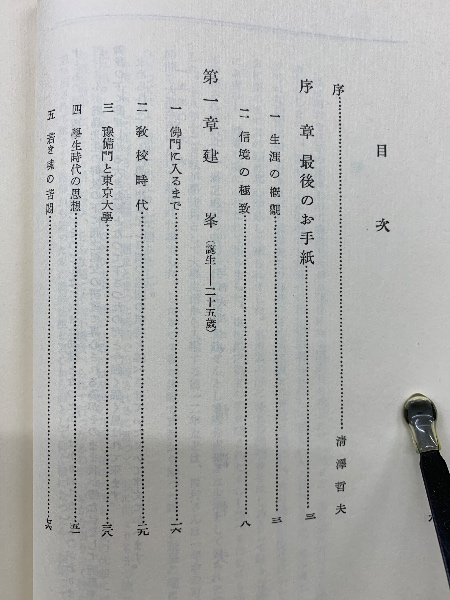 目次
序 清澤哲夫
序章 最後のお手紙 三
一 生涯の概觀 三
二 信境の極致 八
第一章 建峯 (誕生——二十五歲)
一 佛門に入るまで 一六
二 敎校時代 二九
三 豫備門と東京大學 三八
四 學生時代の思想 五一
五 若き魂の苦悶 七六